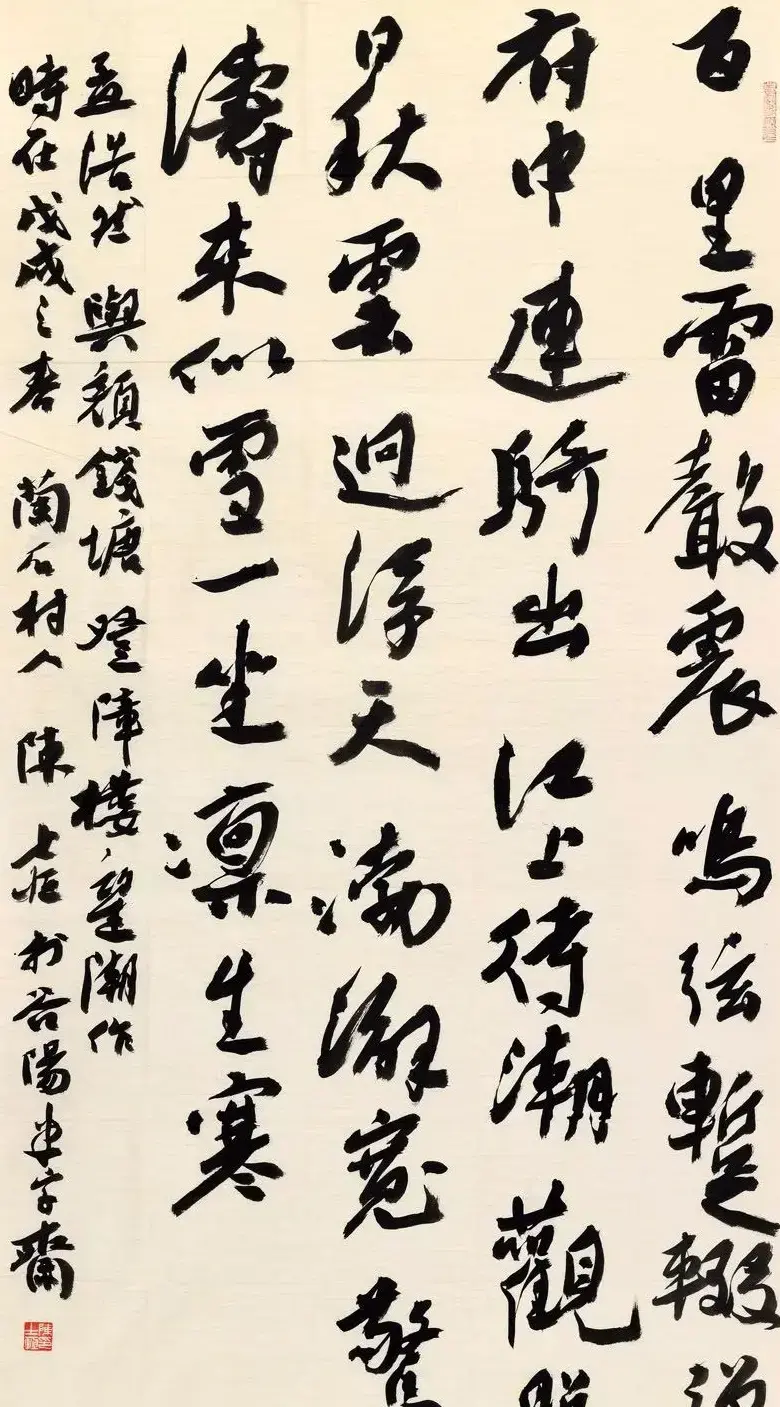 百里雷聲震鳴弦蹔輟
府中連騎出江上待潮觀
日秋雲迥浮天渤澥寬驚
濤來似雪一坐凜生寒
孟浩然與顏錢塘登障樓望潮作
時在戊戌之春蘭石村人陳於谷陽字齋